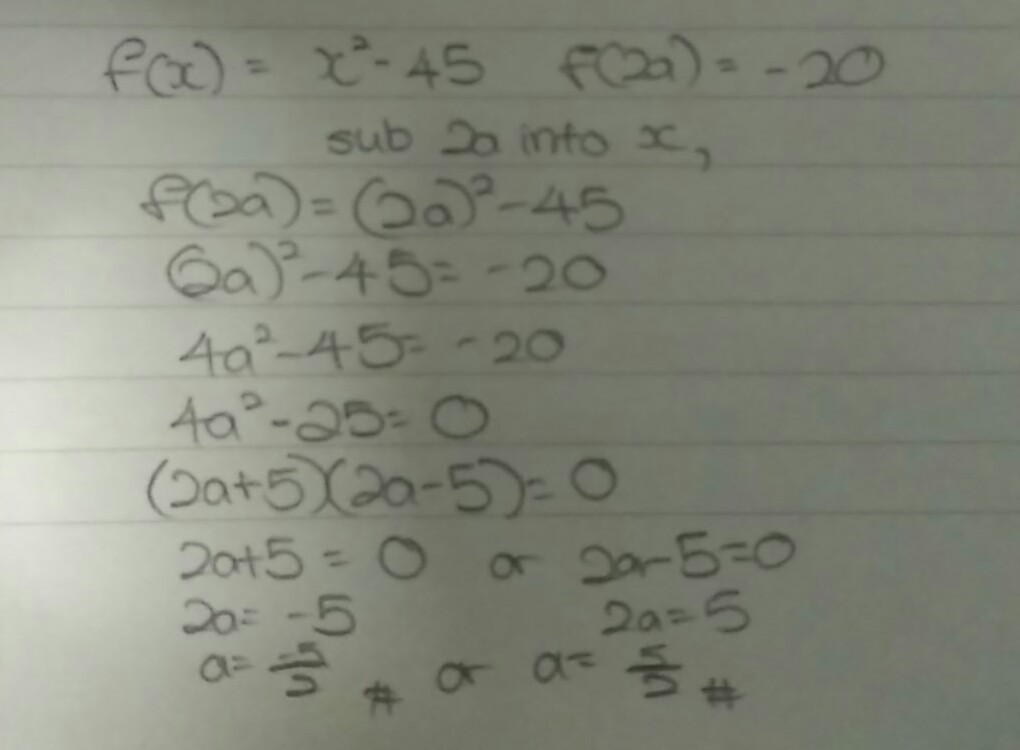 f(x) = x² - 45 f(2a) = -20
sub 2a into x,
f(2a) = (2a)² - 45
(2a)² - 45 = -20
4a² - 45 = -20
4a² - 25 = 0
(2a+5)(2a-5) = 0
2a+5 = 0 or 2a-5 = 0
2a = -5 2a = 5
a = -5/2 # or a = 5/2 #